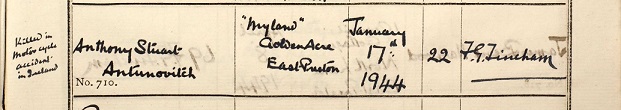 Killed in
Motor cycle
accident
in Ireland
Anthony Stuart
Antunovitch
No. 710.
"Myland"
Golden Acre
East Preston
January
17th
1944
22
F.G. Fincham